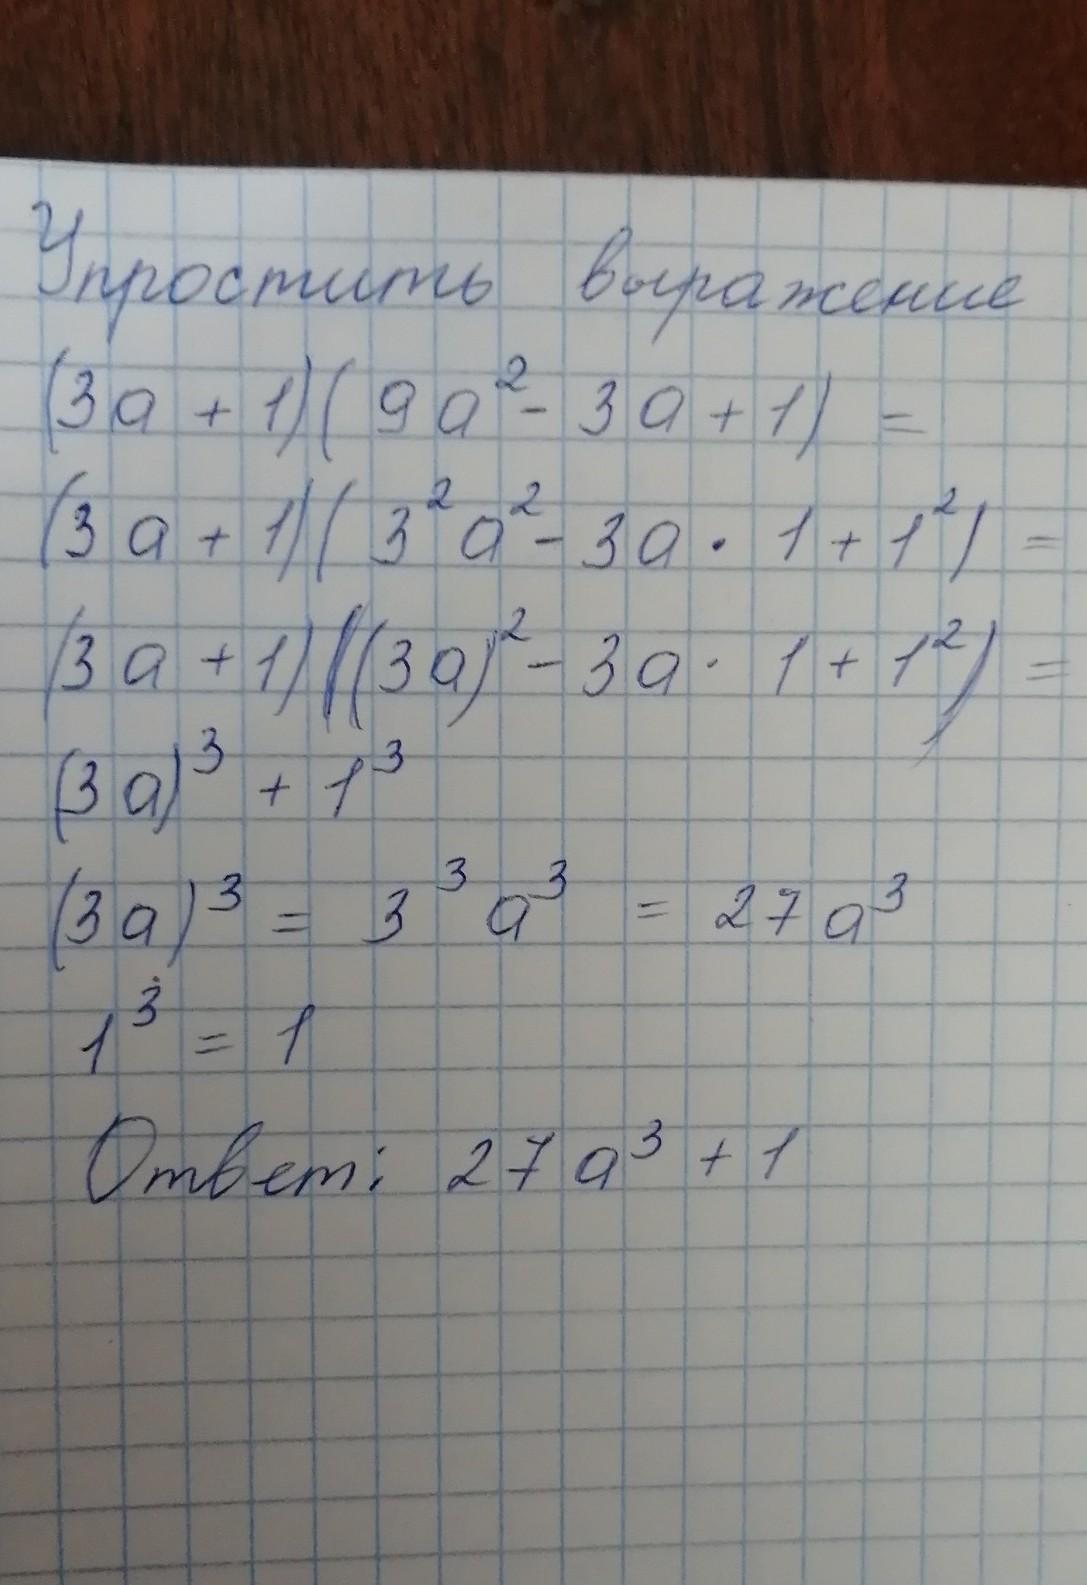 Упростить выражение
(3a + 1)(9a² - 3a + 1) =
(3a + 1)(3²a² - 3a · 1 + 1²) =
(3a + 1)((3a)² - 3a · 1 + 1²) =
(3a)³ + 1³
(3a)³ = 3³a³ = 27a³
1³ = 1
Ответ: 27a³ + 1